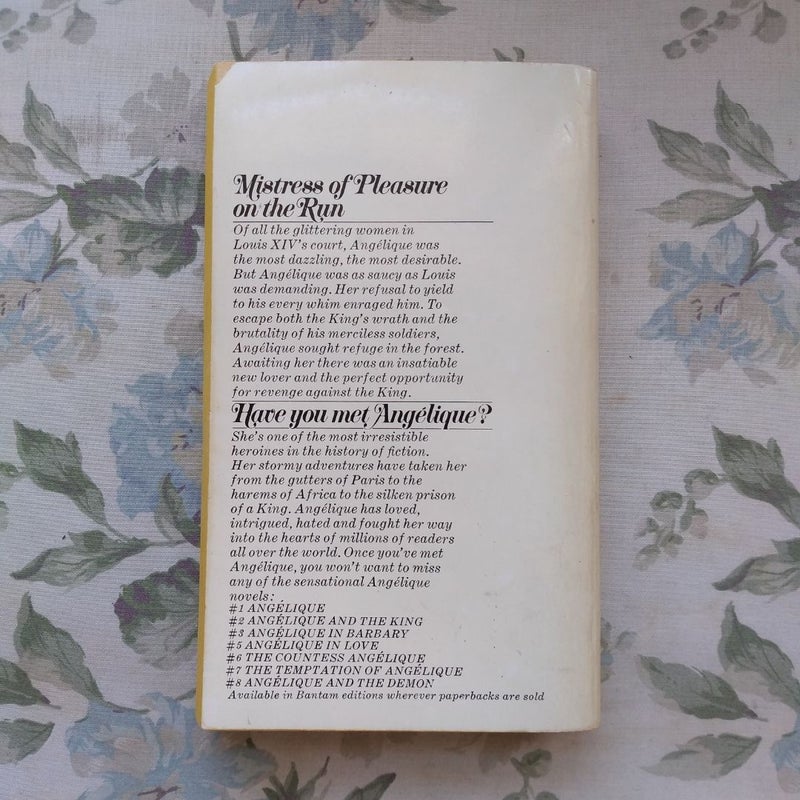 Mistress of Pleasure
on the Run
Of all the glittering women in
Louis XIV's court, Angélique was
the most dazzling, the most desirable.
But Angélique was as saucy as Louis
was demanding. Her refusal to yield
to his every whim enraged him. To
escape both the King's wrath and the
brutality of his merciless soldiers,
Angélique sought refuge in the forest.
Awaiting her there was an insatiable
new lover and the perfect opportunity
for revenge against the King.
Have you met Angélique?
She's one of the most irresistible
heroines in the history of fiction.
Her stormy adventures have taken her
from the gutters of Paris to the
harems of Africa to the silken prison
of a King. Angélique has loved,
intrigued, hated and fought her way
into the hearts of millions of readers
all over the world. Once you've met
Angélique, you won't want to miss
any of the sensational Angélique
novels:
#1 ANGÉLIQUE
#2 ANGÉLIQUE AND THE KING
#3 ANGÉLIQUE IN BARBARY
#5 ANGÉLIQUE IN LOVE
#6 THE COUNTESS ANGÉLIQUE
#7 THE TEMPTATION OF ANGÉLIQUE
#8 ANGÉLIQUE AND THE DEMON
Available in Bantam editions wherever paperbacks are sold